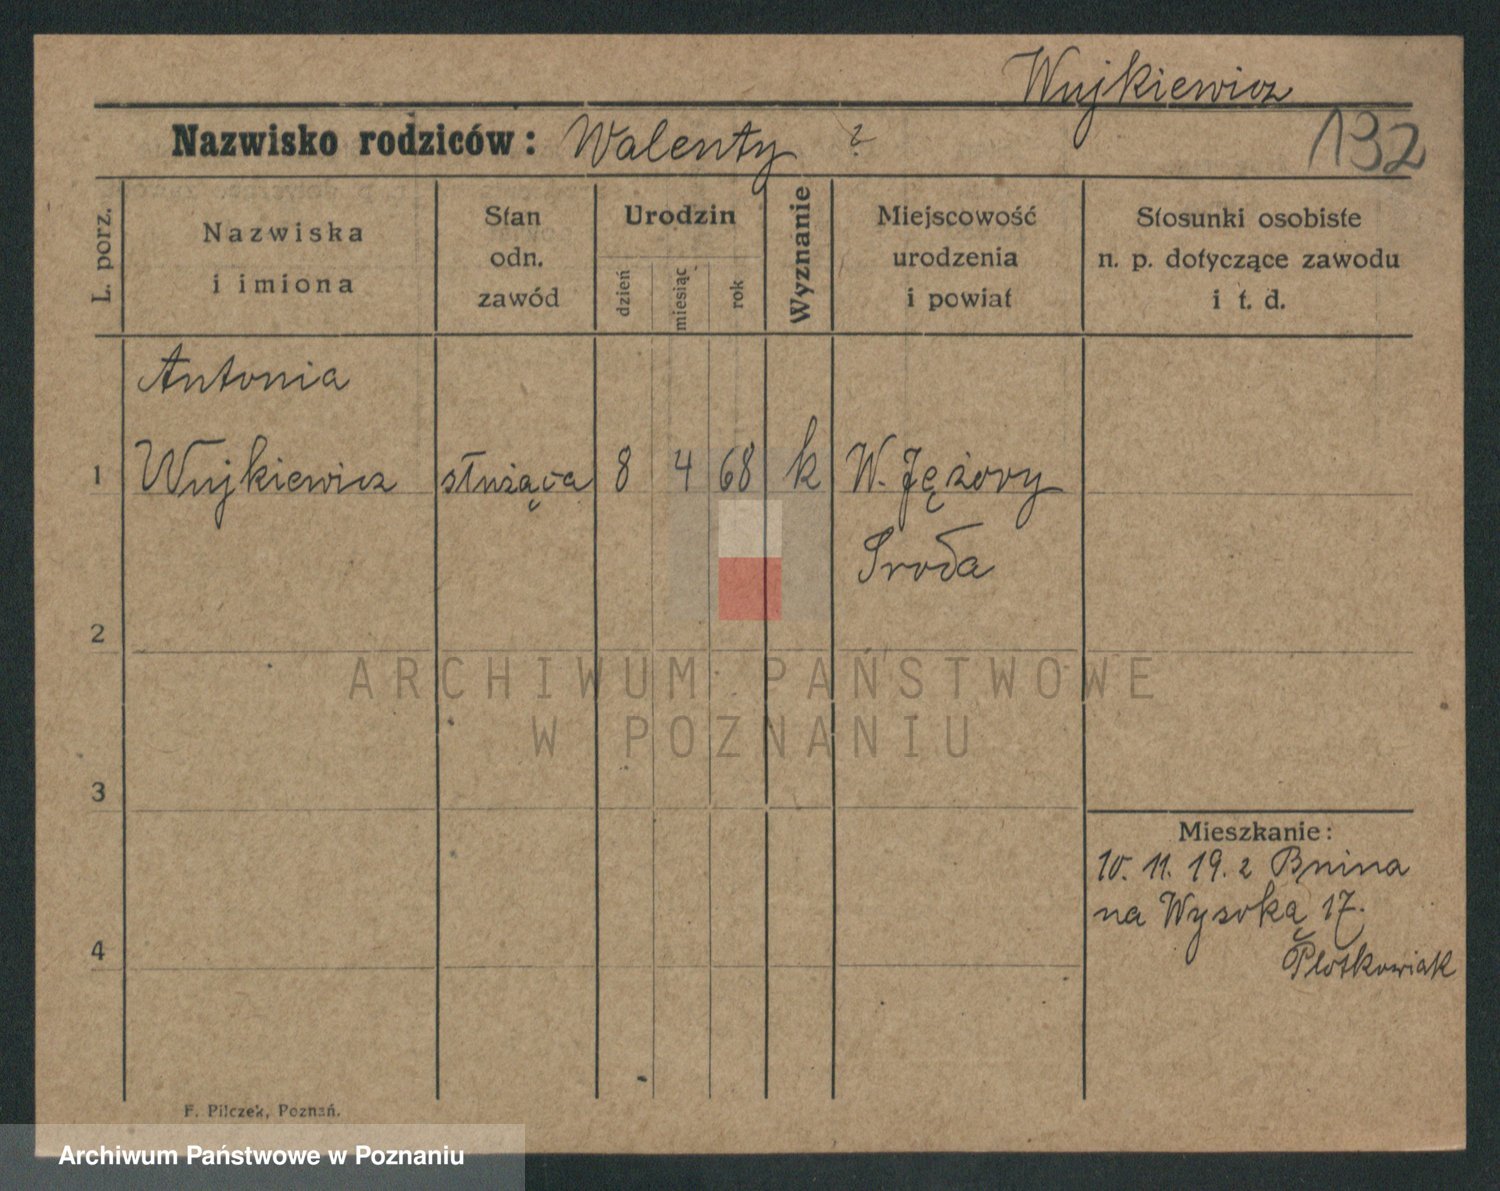 Wujkiewicz
Nazwisko rodziców: Walenty ?
132
L. porz.
Nazwiska
i imiona
Stan
odn.
zawód
Urodzin
dzień
miesiąc
rok
Wyznanie
Miejscowość
urodzenia
i powiat
Stosunki osobiste
n. p. dotyczące zawodu
i t. d.
Antonia
1 Wujkiewicz służąca 8 4 68 k W. Jężory
Sroda
2
ARCHIWUM PAŃSTWOWE
W POZNANIU
3
Mieszkanie:
10. 11. 19. z Bnina
na Wysoką 17.
4
Plotkowiak
F. Pilczek, Poznań.
Archiwum Państwowe w Poznaniu